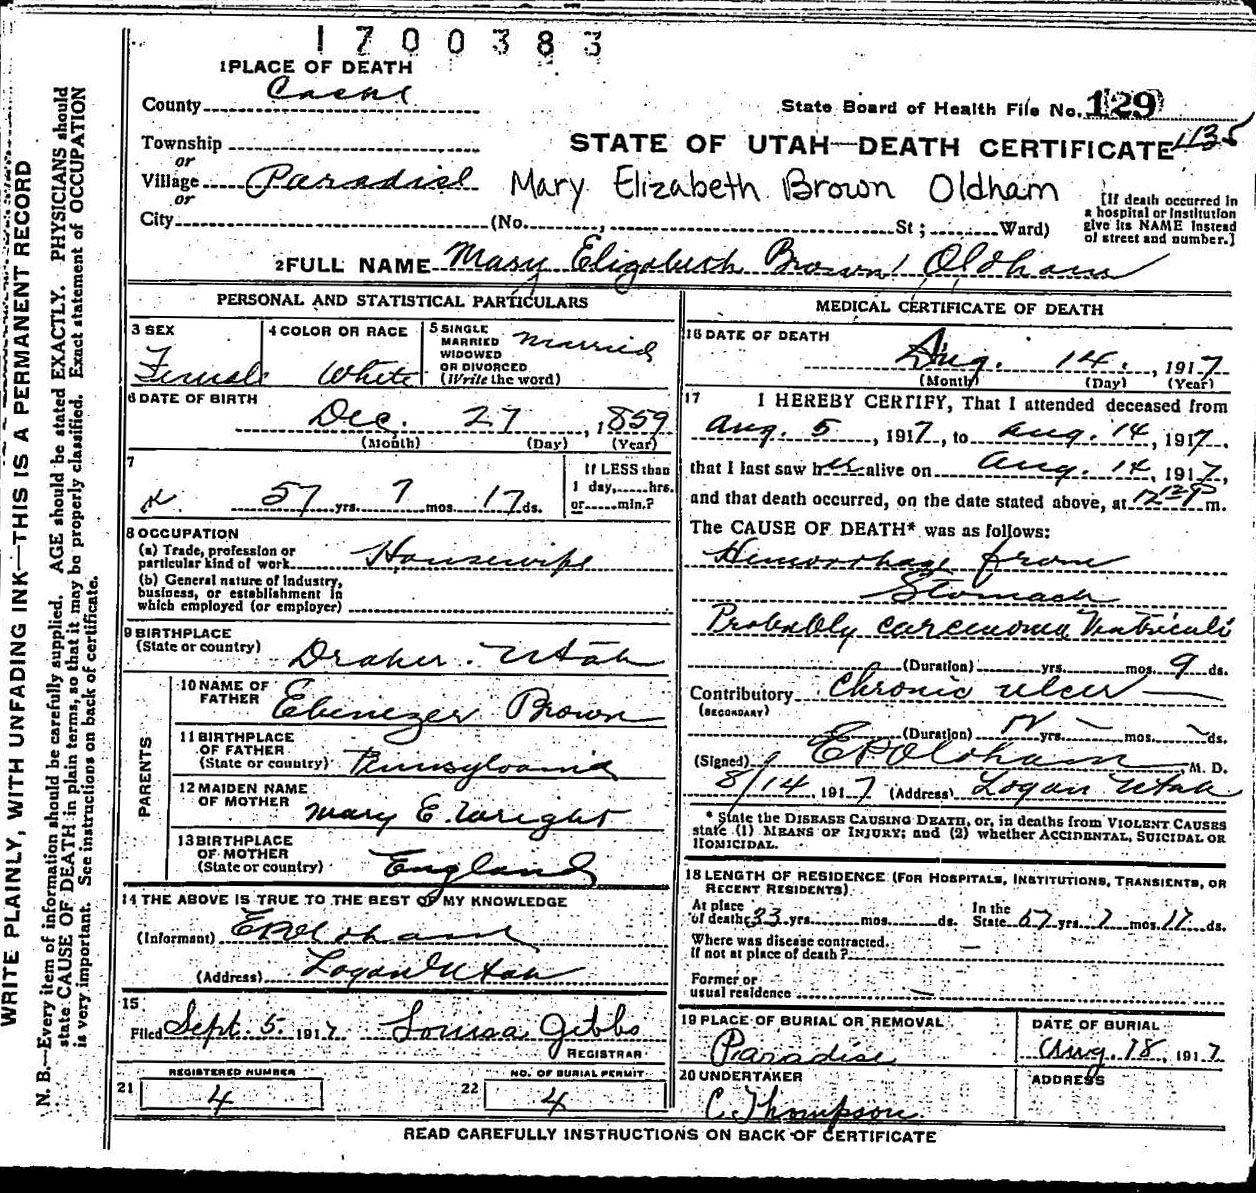 1700383
1 PLACE OF DEATH
County Cache
State Board of Health File No. 129
Township
or
STATE OF UTAH—DEATH CERTIFICATE 1135
Village Paradise Mary Elizabeth Brown Oldham
or
City (No. St; Ward)
[If death occurred in
a hospital or institution
give its NAME instead
of street and number.]
2 FULL NAME Mary Elizabeth Brown Oldham
PERSONAL AND STATISTICAL PARTICULARS
3 SEX
Female
4 COLOR OR RACE
White
5 SINGLE
MARRIED
WIDOWED
OR DIVORCED
(Write the word)
Married
6 DATE OF BIRTH
Dec. 27, 1859
(Month) (Day) (Year)
7
57 yrs. 7 mos. 17 ds.
If LESS than
1 day, hrs.
or min.?
8 OCCUPATION
(a) Trade, profession or
particular kind of work Housewife
(b) General nature of industry,
business, or establishment in
which employed (or employer)
9 BIRTHPLACE
(State or country) Draper. Utah
PARENTS
10 NAME OF
FATHER Ebenezer Brown
11 BIRTHPLACE
OF FATHER
(State or country) Pennsylvania
12 MAIDEN NAME
OF MOTHER Mary E. Wright
13 BIRTHPLACE
OF MOTHER
(State or country) England
14 THE ABOVE IS TRUE TO THE BEST OF MY KNOWLEDGE
(Informant) E P Oldham
(Address) Logan Utah
15
Filed Sept. 5. 1917 Louisa Gibbs
REGISTRAR
21 REGISTERED NUMBER
4
22 NO. OF BURIAL PERMIT
4
MEDICAL CERTIFICATE OF DEATH
16 DATE OF DEATH
Aug. 14., 1917
(Month) (Day) (Year)
17 I HEREBY CERTIFY, That I attended deceased from
Aug. 5, 1917, to Aug. 14, 1917.
that I last saw her alive on Aug. 14, 1917,
and that death occurred, on the date stated above, at m.
The CAUSE OF DEATH* was as follows:
Hemorrhage from
Stomach
Probably carcinoma Ventriculi
(Duration) yrs. mos. 9 ds.
Contributory Chronic ulcer
(SECONDARY)
(Duration) yrs. mos. ds.
(Signed) E P Oldham M. D.
8/14, 1917 (Address) Logan Utah
* State the DISEASE CAUSING DEATH, or, in deaths from VIOLENT CAUSES
state (1) MEANS OF INJURY; and (2) whether ACCIDENTAL, SUICIDAL OR
HOMICIDAL.
18 LENGTH OF RESIDENCE (FOR HOSPITALS, INSTITUTIONS, TRANSIENTS, OR
RECENT RESIDENTS)
At place
of death 33 yrs. mos. ds.
In the
State 57 yrs. 7 mos. 17 ds.
Where was disease contracted.
If not at place of death? —
Former or
usual residence —
19 PLACE OF BURIAL OR REMOVAL
Paradise
DATE OF BURIAL
Aug. 18, 1917
20 UNDERTAKER
C. Thompson
ADDRESS
READ CAREFULLY INSTRUCTIONS ON BACK OF CERTIFICATE
WRITE PLAINLY, WITH UNFADING INK—THIS IS A PERMANENT RECORD
N. B.—Every item of information should be carefully supplied. AGE should be stated EXACTLY. PHYSICIANS should
state CAUSE OF DEATH in plain terms, so that it may be properly classified. Exact statement of OCCUPATION
is very important. See instructions on back of certificate.